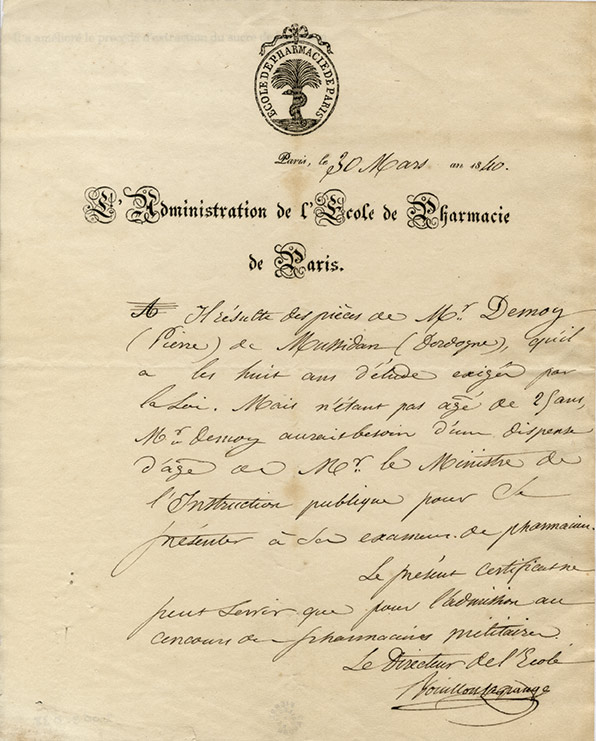 ECOLE DE PHARMACIE DE PARIS
Paris, le 30 Mars an 1840.
L'Administration de l'Ecole de Pharmacie
de Paris.
A Il résulte des pièces de Mr. Demoy
(Pierre) de Mussidan (Dordogne), qu'il
a les huit ans d'étude exigés par
la Loi. Mais n'étant pas âgé de 25 ans,
Mr. Demoy aurait besoin d'une dispense
d'âge de Mr. le Ministre de
l'Instruction publique pour se
présenter à ses examens de pharmacien.
Le présent certificat ne
peut servir que pour l'admission au
concours des pharmaciens militaires
Le Directeur de l'Ecole
Bouillon Lagrange